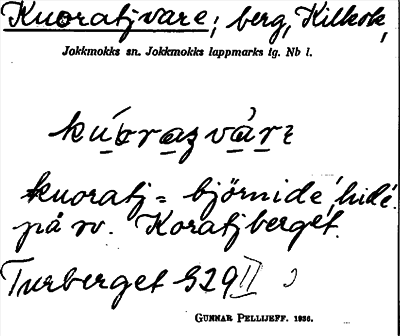 Kuoratjvare; berg, Kilkok,
Jokkmokks sn. Jokkmokks lappmarks tg. Nb l.
kuoratj = björnide, hide.
på sv. Koratjberget.
Turberget 529 II
GUNNAR PELLIJEFF. 1936.